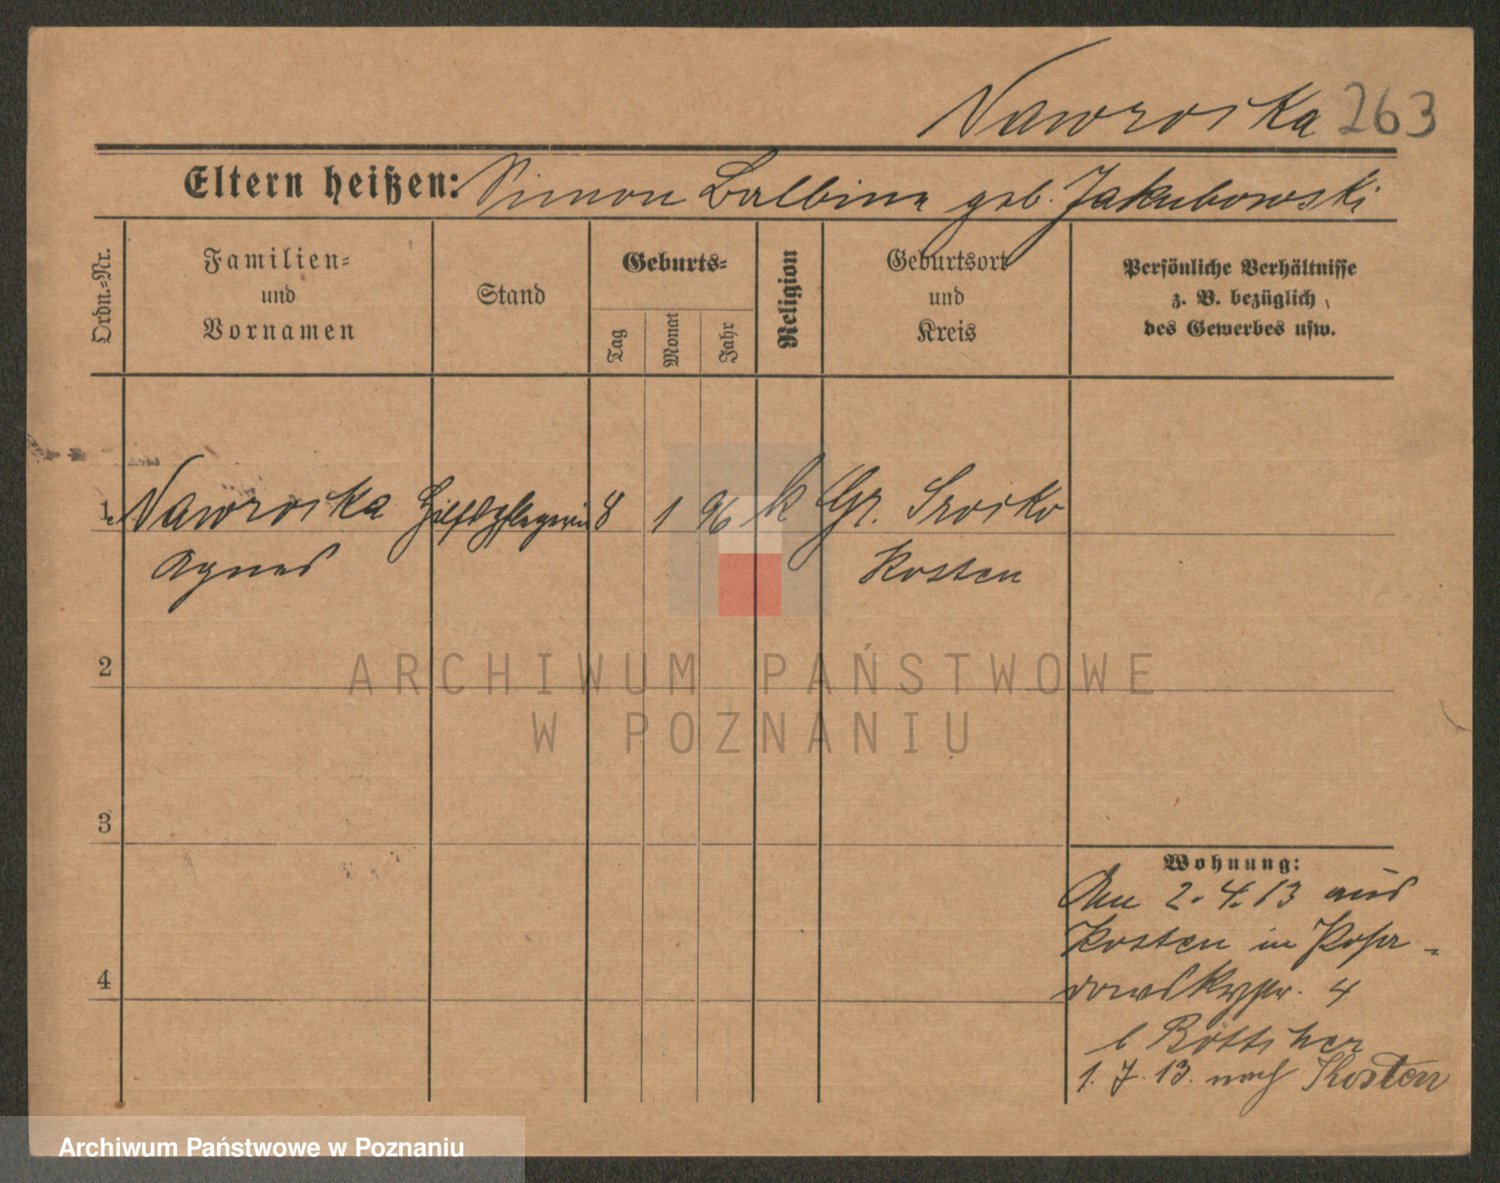 Nawroika 263
Eltern heißen: Simon Balbina geb. Jakubowski
Ordn.-Nr.
Familien-
und
Vornamen
Stand
Geburts-
Tag
Monat
Jahr
Religion
Geburtsort
und
Kreis
Persönliche Verhältnisse
z. B. bezüglich
des Gewerbes usw.
1. Nawroika Hilfspflegerin 8 1 96 k Gr. Sroiko
Agnes Kosten
2
3
4
Wohnung:
Am 2.4.13 aus
Kosten in
4
b Böttcher
1.7.13. nach Kosten
ARCHIWUM PAŃSTWOWE
W POZNANIU
Archiwum Państwowe w Poznaniu